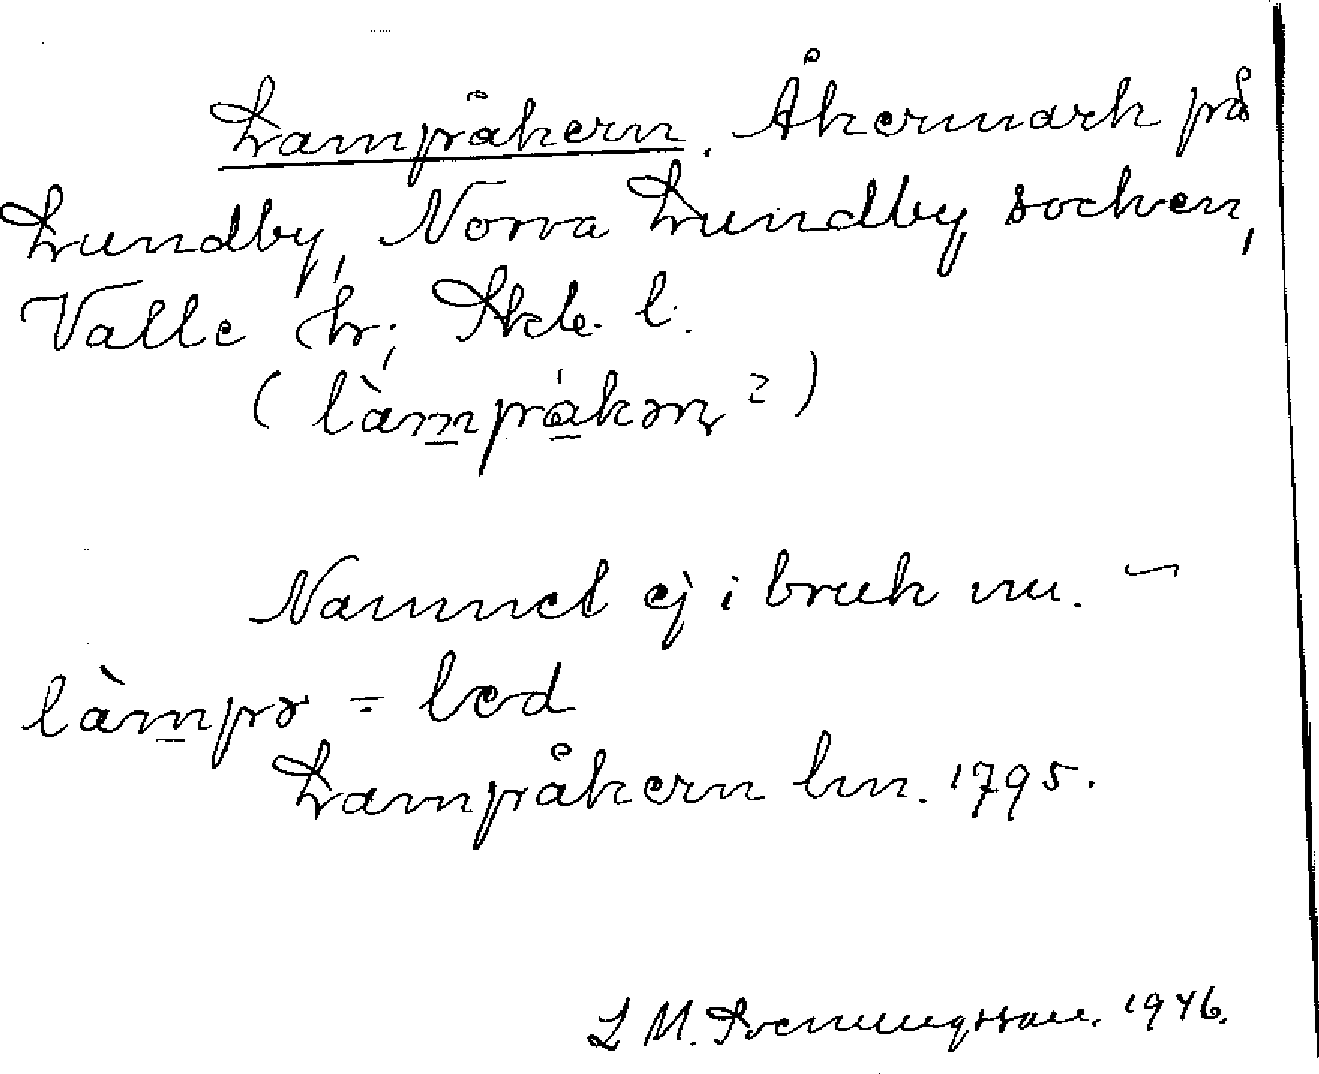 Lampåkern. Åkermark på
Lundby, Norra Lundby socken,
Valle hr; Skb. l.
(làmpåkəɳ ?)
Namnet ej i bruk nu. –
làmpə = led
Lampåkern lm. 1795.
L M. Svenungsson. 1946.